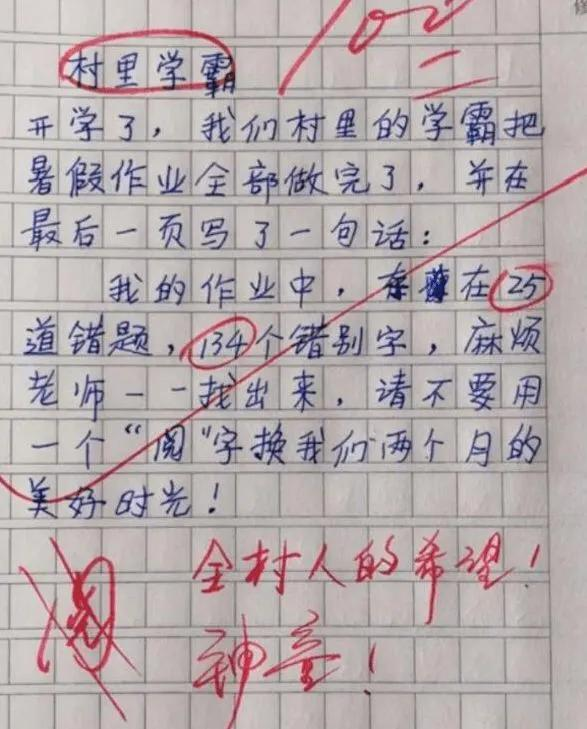 村里学霸
开学了，我们村里的学霸把
暑假作业全部做完了，并在
最后一页写了一句话：
我的作业中，在25
道错题，134个错别字，麻烦
老师一一找出来，请不要用
一个“阅”字换我们两个月的
美好时光！
全村人的希望！
神童！